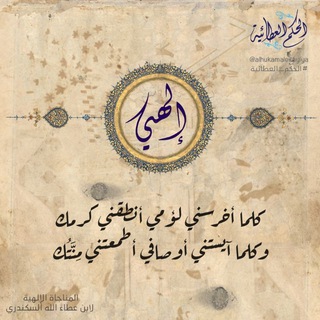 الحكم العطائية
#الحكم_العطائية
إلهي
كلما أخرسني لؤمي أنطقني كرمك
وكلما آيستني أوصافي أطمعتني مِنَّتُك
المناجاة الإلهية
لابن عطاء الله السكندري